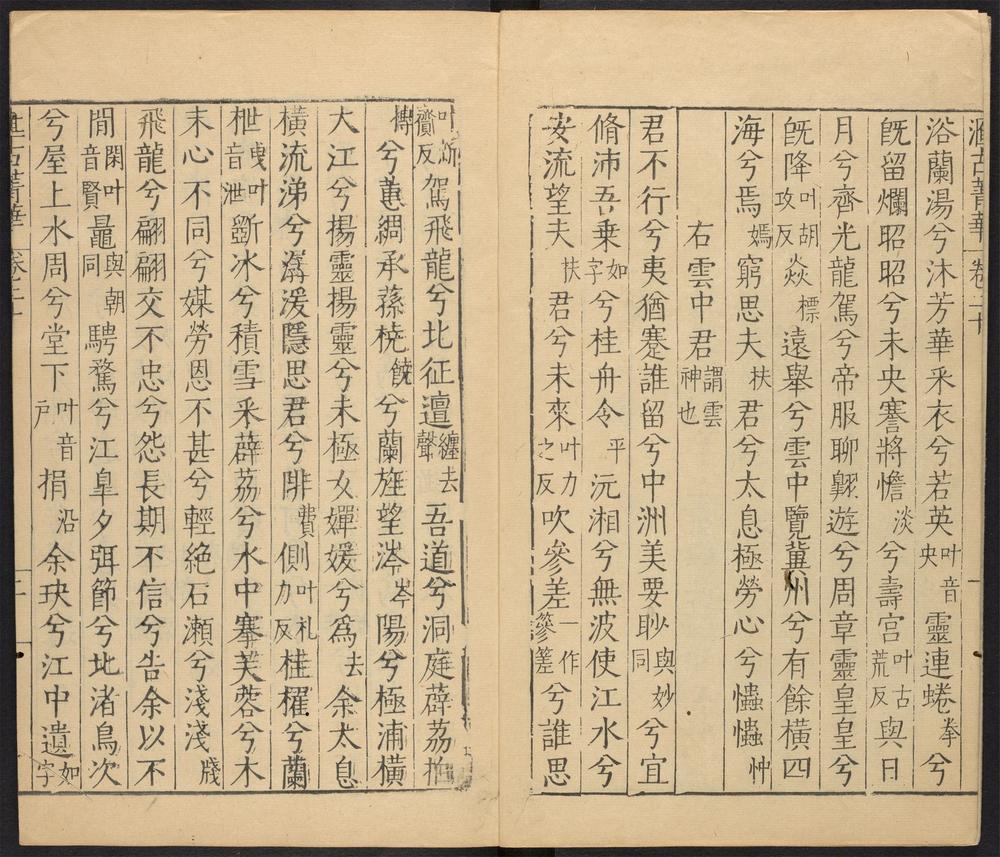 滙古菁華 卷二十 一
浴蘭湯兮沐芳華采衣兮若英叶音央靈連蜷拳兮
旣留爛昭昭兮未央蹇將憺淡兮壽宮叶古荒反與日
月兮齊光龍駕兮帝服聊翺遊兮周章靈皇皇兮
旣降叶胡攻反焱標遠舉兮雲中覽冀州兮有餘橫四
海兮焉嫣窮思夫扶君兮太息極勞心兮𢥞𢥞忡
右雲中君謂雲神也
君不行兮夷猶蹇誰留兮中洲美要眇與妙同兮宜
脩沛吾乘如字兮桂舟令平沅湘兮無波使江水兮
安流望夫扶君兮未來叶力之反吹參差一作篸䇎兮誰思
叶新齎反駕飛龍兮北征邅纏去聲吾道兮洞庭薜荔柏
搏兮蕙綢承蓀橈饒兮蘭旌望涔岑陽兮極浦橫
大江兮揚靈揚靈兮未極女嬋媛兮爲去余太息
橫流涕兮潺湲隱思君兮陫費側叶札力反桂櫂兮蘭
枻曳叶音泄斲冰兮積雪采薜荔兮水中搴芙蓉兮木
末心不同兮媒勞恩不甚兮輕絕石瀨兮淺淺牋
飛龍兮翩翩交不忠兮怨長期不信兮告余以不
閒閑叶音賢鼂與朝同騁騖兮江皐夕弭節兮北渚鳥次
兮屋上水周兮堂下叶音戶捐沿余玦兮江中遺如字